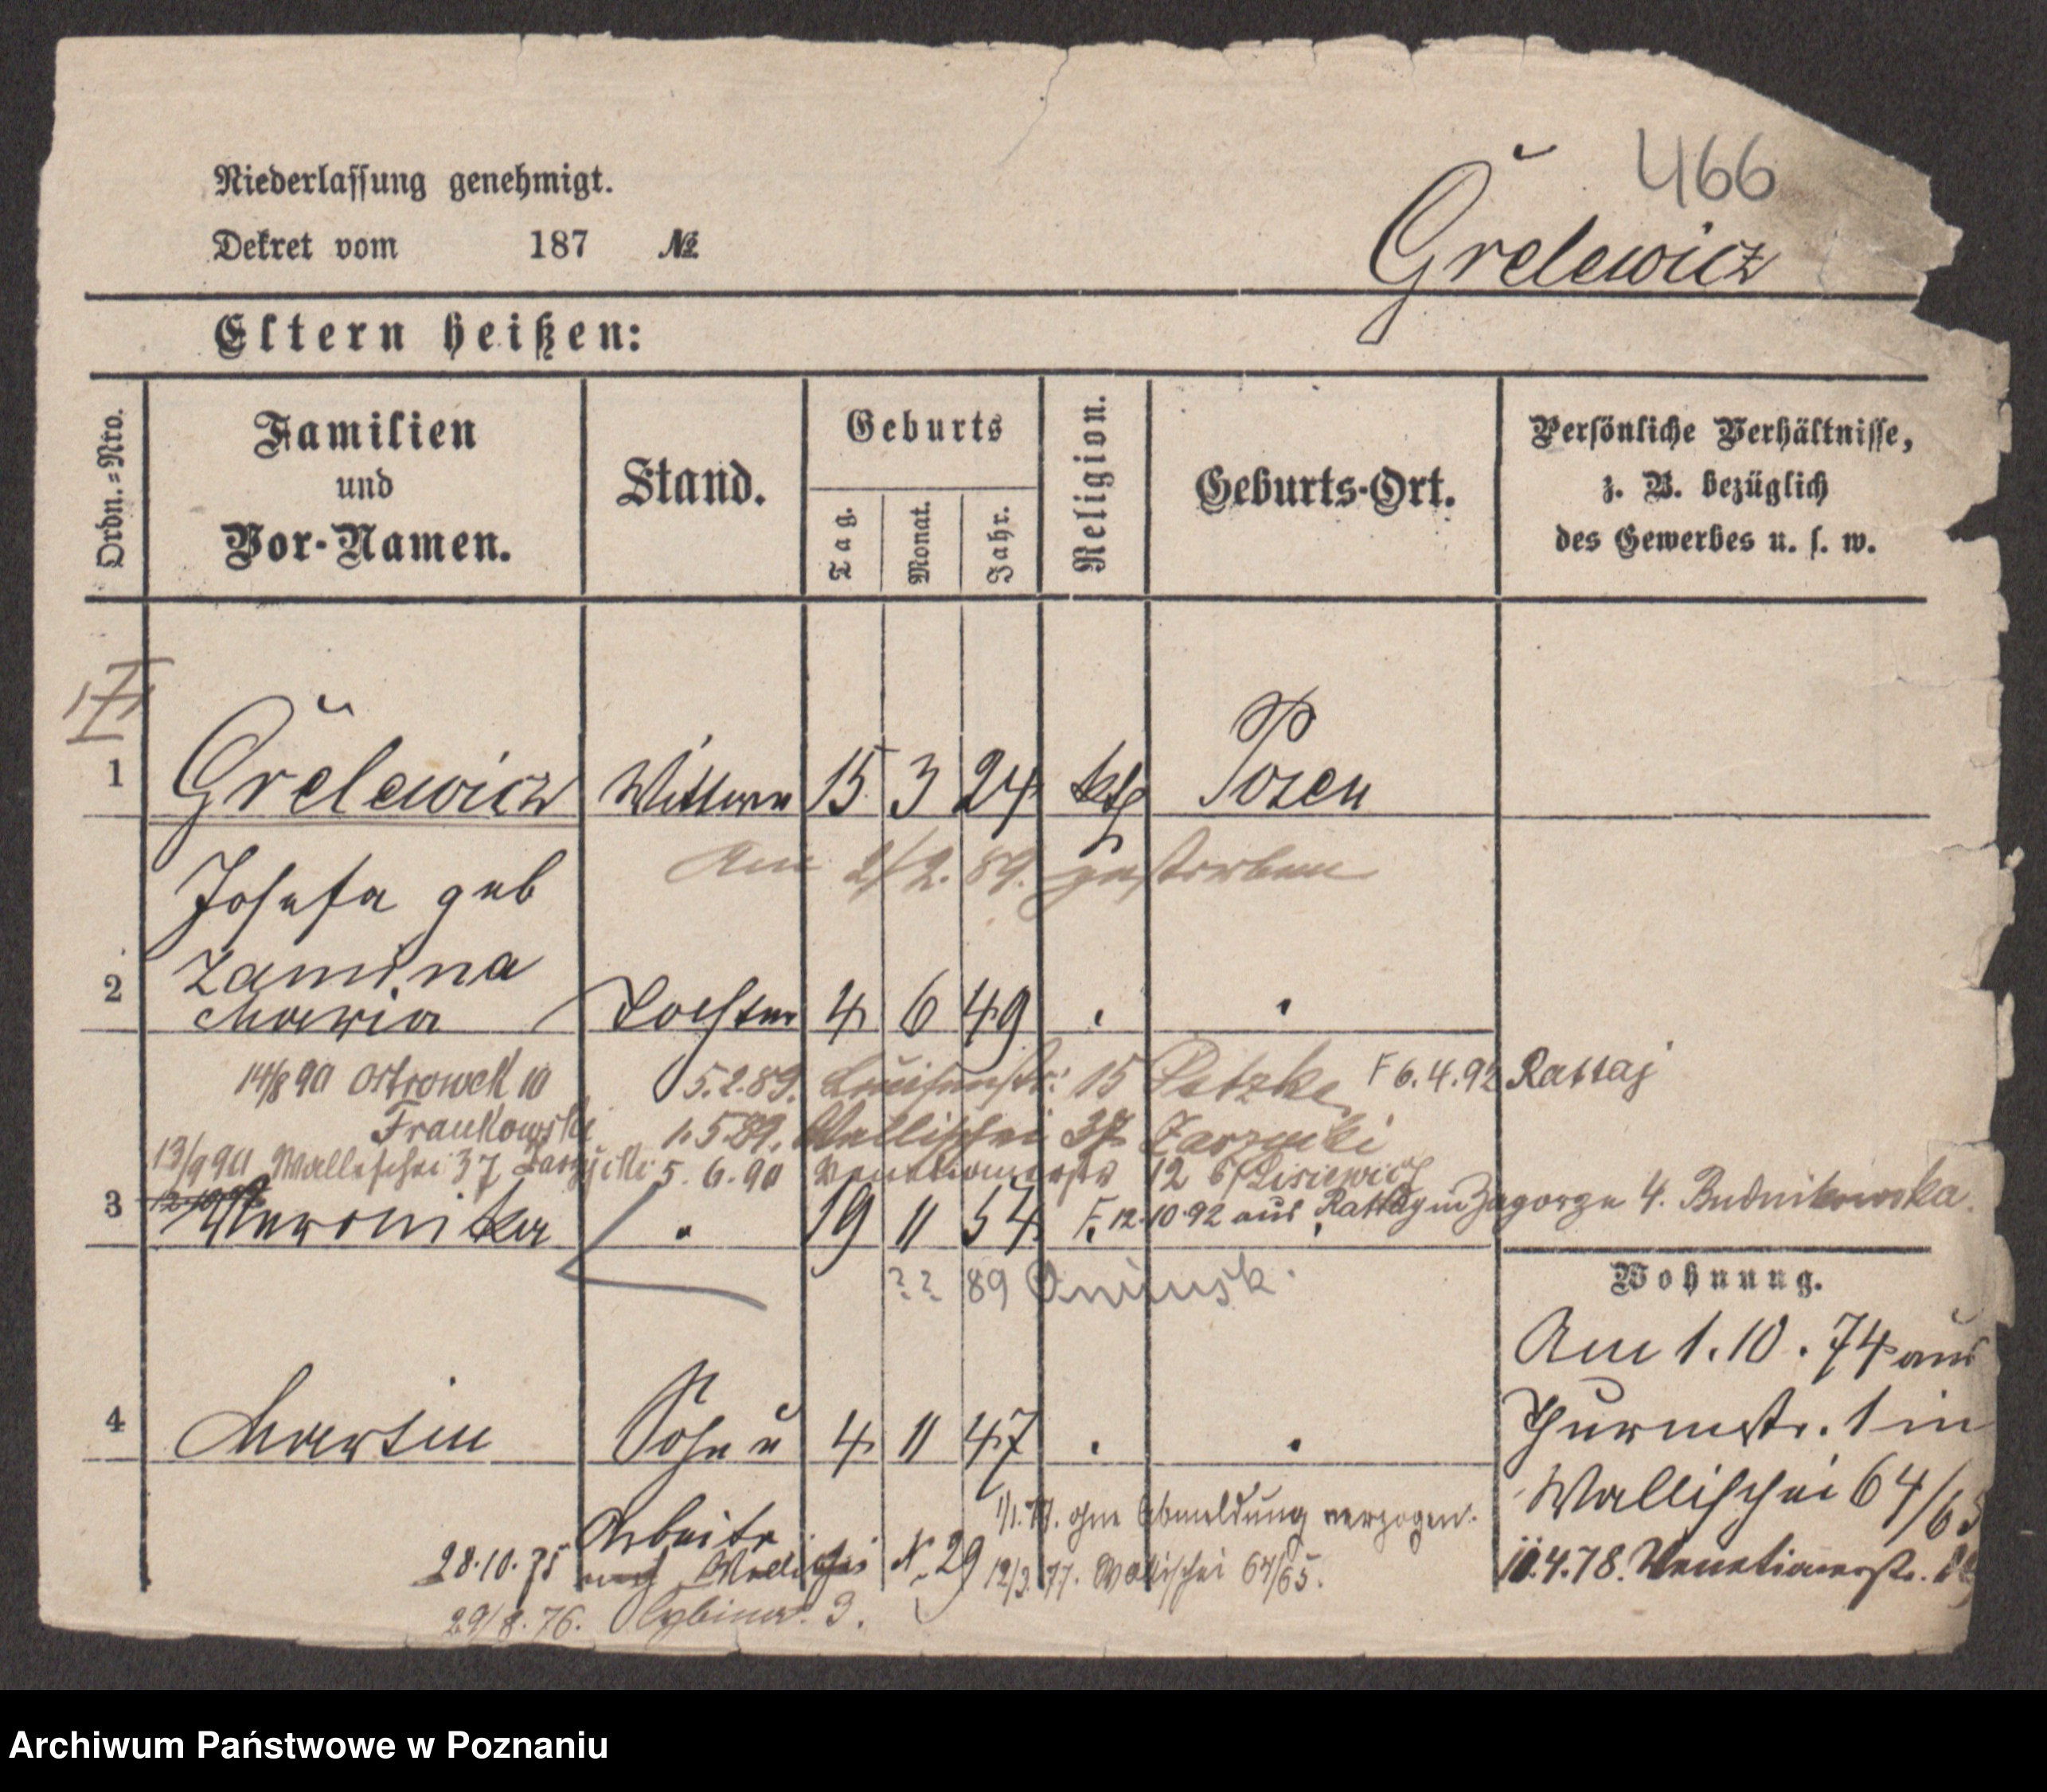 466
Niederlassung genehmigt.
Dekret vom 187 №
Grelewicz
Eltern heißen:
Ordn.=Nro.
Familien
und
Vor-Namen.
Stand.
Geburts
Tag.
Monat.
Jahr.
Religion.
Geburts-Ort.
Persönliche Verhältnisse,
z. B. bezüglich
des Gewerbes u. s. w.
1 Grelewicz Wittwe 15 3 24 kth Posen
Am 2/2. 89. gestorben
Josefa geb
Zamina
2 Maria Tochter 4 6 49 . .
14/8 90 Ostrowek 10 5.2.89. 15 F 6.4.92 Rattaj
Frankowski 1.5.89. Wallischei 37 Zarzycki
13/9 90 Wallischei 37 Zarzycki 5. 6. 90 Venetianerstr 12 b/ Lisiewicz
12.10.92
3 Weronika . 19 11 54 F. 12.10.92 aus Rattay in Zagorze 4. Budnikowska.
? ? 89
Wohnung.
Am 1.10.74 aus
Thurmstr. 1 in
Wallischei 64/65
10.4.78. Venetianerstr.
4 Martin Sohn 4 11 47 . .
Arbeiter
1/1.77. ohne Abmeldung verzogen.
28.10.75 nach Wallischei N. 29
12/3.77. Wallischei 64/65.
29/8.76. Cybinas. 3.
Archiwum Państwowe w Poznaniu